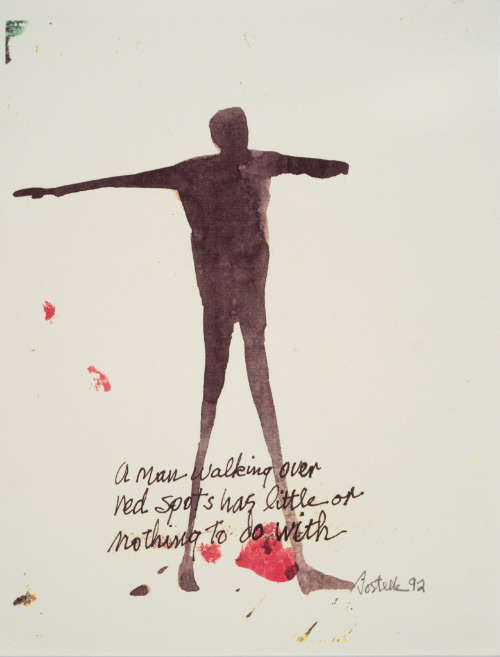 A man walking over
red spots has little or
nothing to do with
Postelle 92